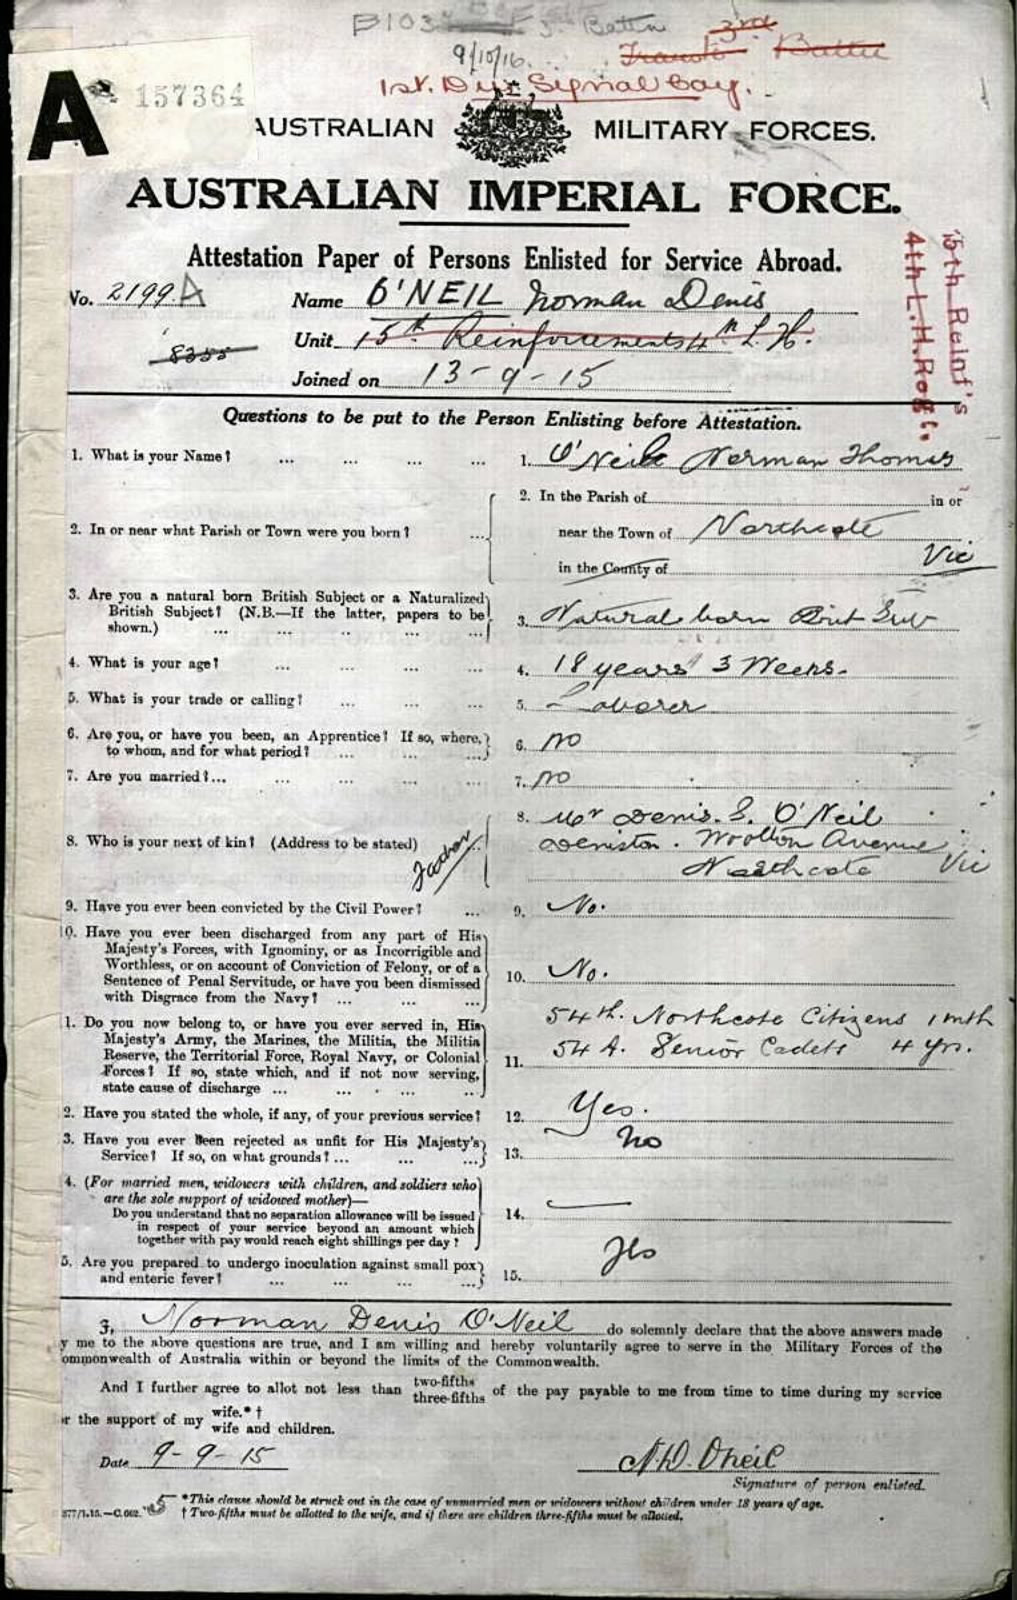 B103 3. Battn 3rd
9/10/16. Transf. Battn
1st. Div. Signal Coy.
A 157364
AUSTRALIAN MILITARY FORCES.
AUSTRALIAN IMPERIAL FORCE.
Attestation Paper of Persons Enlisted for Service Abroad.
No. 2199 A Name O'NEIL Norman Denis
8355 Unit 15th Reinforcements 4th L. H.
Joined on 13-9-15
15th Reinf's
4th L.H.Regt.
Questions to be put to the Person Enlisting before Attestation.
1. What is your Name? ... ... ... ... 1. O'Neil Norman Thomas
2. In the Parish of in or
2. In or near what Parish or Town were you born? ... near the Town of Northcote
in the County of Vic
3. Are you a natural born British Subject or a Naturalized
British Subject? (N.B.—If the latter, papers to be
shown.) ... ... ... ... ... 3. Natural born Brit Sub
4. What is your age? ... ... ... ... 4. 18 years 3 Weeks.
5. What is your trade or calling? ... ... ... 5. Laborer
6. Are you, or have you been, an Apprentice? If so, where,
to whom, and for what period? ... ... ... 6. no
7. Are you married?... ... ... ... ... 7. no
8. Mr Denis. S. O'Neil
8. Who is your next of kin? (Address to be stated) Father Deniston. Wootton Avenue
Northcote Vic
9. Have you ever been convicted by the Civil Power? ... 9. No.
10. Have you ever been discharged from any part of His
Majesty's Forces, with Ignominy, or as Incorrigible and
Worthless, or on account of Conviction of Felony, or of a
Sentence of Penal Servitude, or have you been dismissed
with Disgrace from the Navy? ... ... ... 10. No.
1. Do you now belong to, or have you ever served in, His
Majesty's Army, the Marines, the Militia, the Militia
Reserve, the Territorial Force, Royal Navy, or Colonial
Forces? If so, state which, and if not now serving,
state cause of discharge ... ... ... ...
54th. Northcote Citizens 1 mth
11. 54 A. Senior Cadets 4 yrs.
2. Have you stated the whole, if any, of your previous service? 12. Yes.
3. Have you ever been rejected as unfit for His Majesty's
Service? If so, on what grounds? ... ... ... 13. no
4. (For married men, widowers with children, and soldiers who
are the sole support of widowed mother)—
Do you understand that no separation allowance will be issued
in respect of your service beyond an amount which
together with pay would reach eight shillings per day? 14. —
5. Are you prepared to undergo inoculation against small pox
and enteric fever? ... ... ... ... 15. yes
I, Norman Denis O'Neil do solemnly declare that the above answers made
y me to the above questions are true, and I am willing and hereby voluntarily agree to serve in the Military Forces of the
ommonwealth of Australia within or beyond the limits of the Commonwealth.
And I further agree to allot not less than two-fifths three-fifths of the pay payable to me from time to time during my service
r the support of my wife.*† wife and children.
Date 9-9-15 N.D. Oneil
Signature of person enlisted.
*This clause should be struck out in the case of unmarried men or widowers without children under 18 years of age.
377/1.15.—C.062. † Two-fifths must be allotted to the wife, and if there are children three-fifths must be allotted.